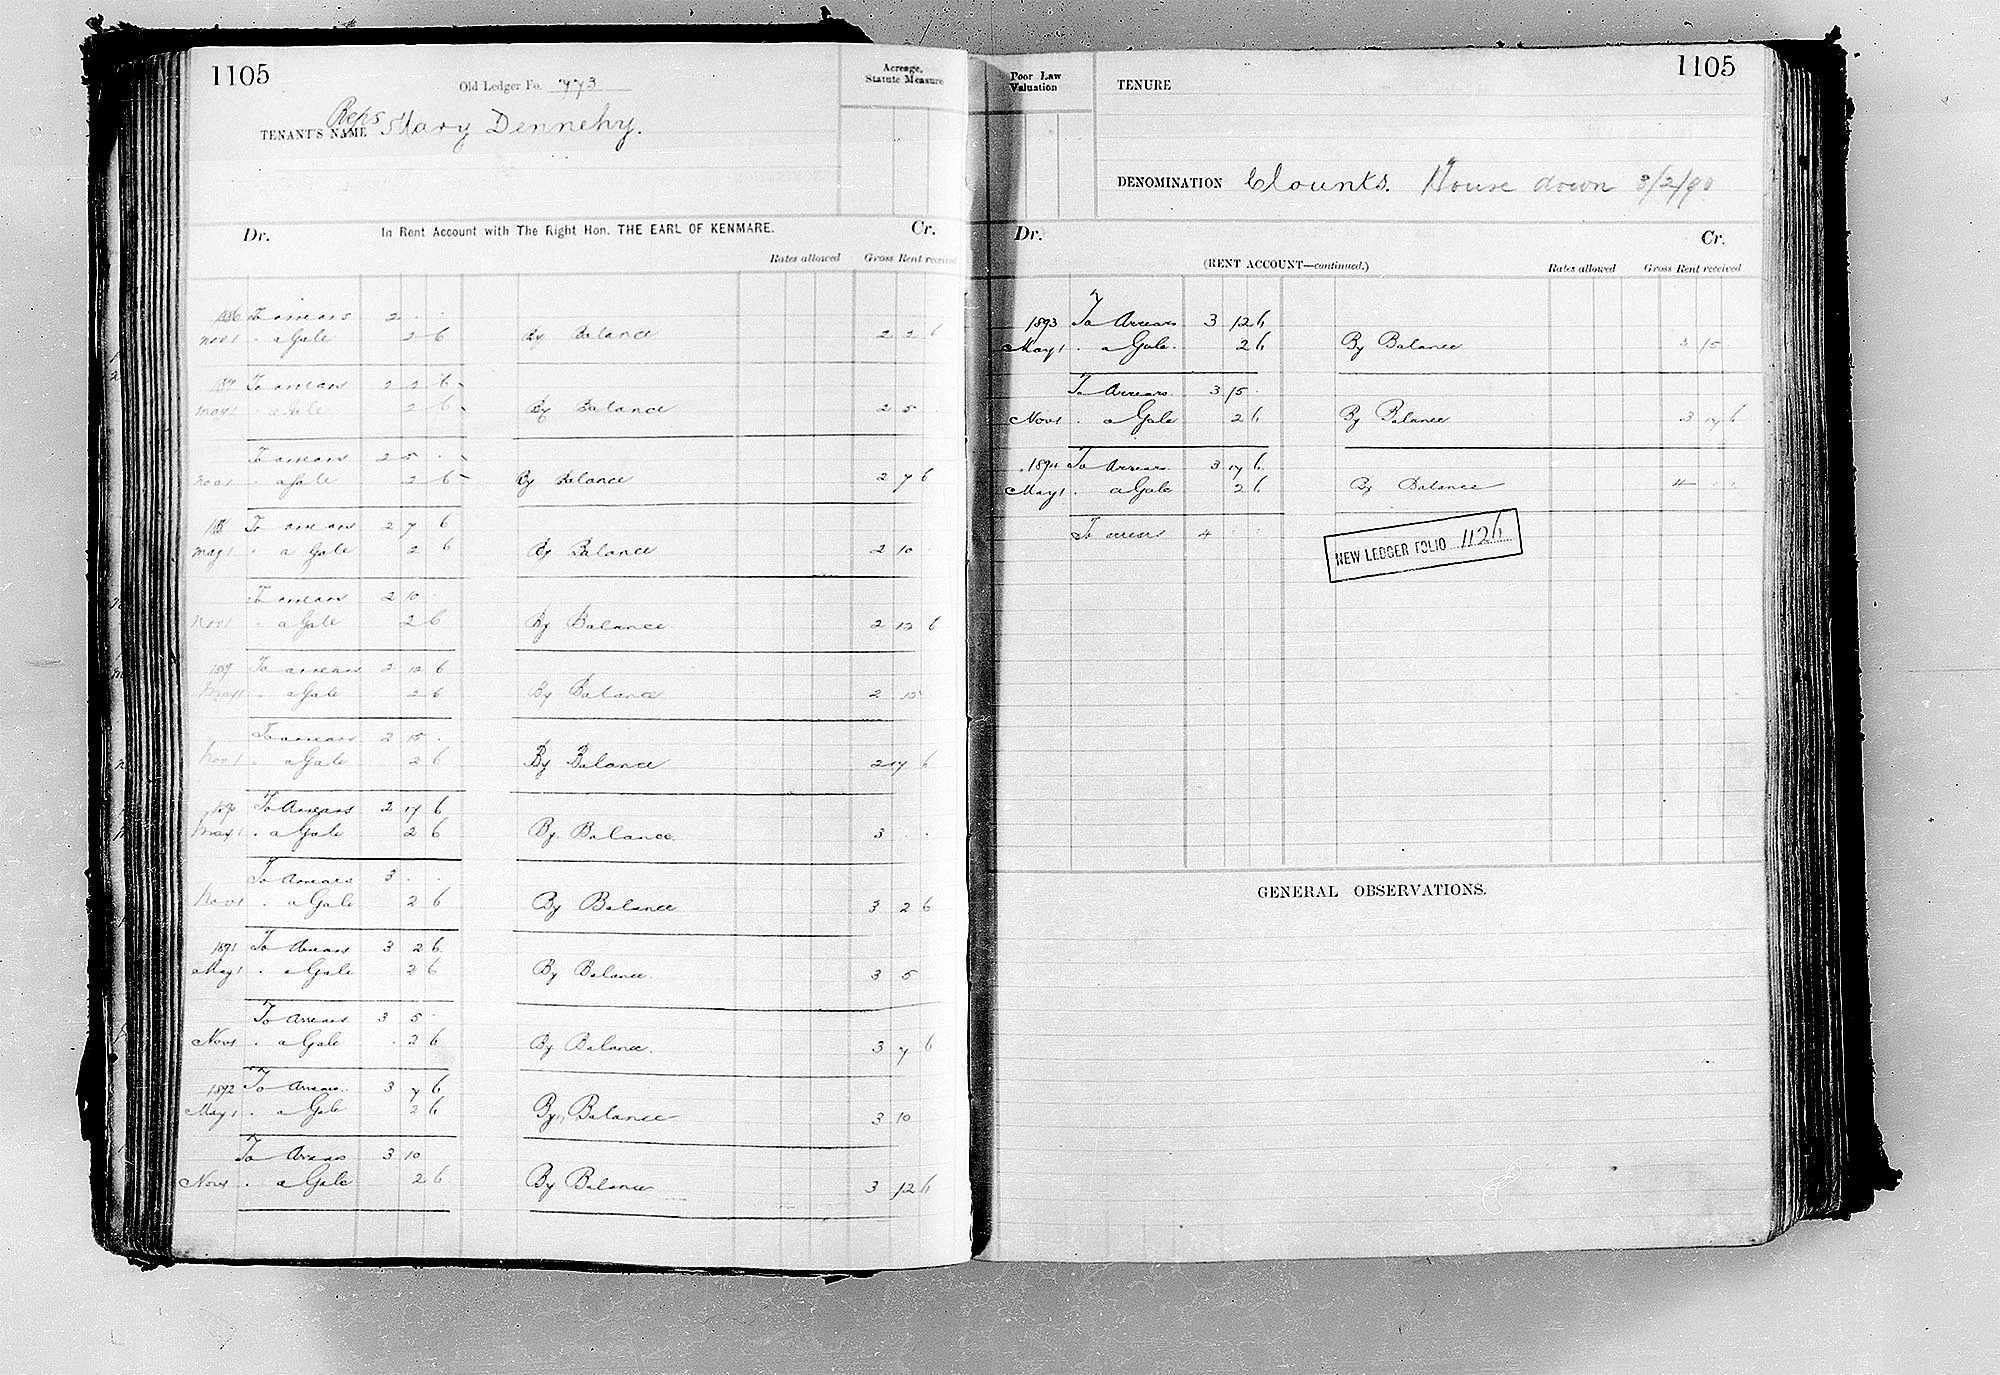 1105
Old Ledger Fo. 773
Acreage, Statute Measure
Reps
TENANT'S NAME Mary Dennehy.
Dr. In Rent Account with The Right Hon. THE EARL OF KENMARE. Cr.
Rates allowed Gross Rent received
1886 To arrears 2 . .
Nov 1 " a Gale 2 6 By Balance 2 2 6
1887 To arrears 2 2 6
May 1 " a Gale 2 6 By Balance 2 5
To arrears 2 5 .
Nov 1 " a Gale 2 6 By Balance 2 7 6
1888 To arrears 2 7 6
May 1 " a Gale 2 6 By Balance 2 10 .
To arrears 2 10
Nov 1 " a Gale 2 6 By Balance 2 12 6
1889 To arrears 2 12 6
May 1 " a Gale 2 6 By Balance 2 15
To arrears 2 15 .
Nov 1 " a Gale 2 6 By Balance 2 17 6
1890 To Arrears 2 17 6
May 1 . a Gale 2 6 By Balance. 3 .
To Arrears 3 . .
Nov 1 . a Gale 2 6 By Balance 3 2 6
1891 To Arrears 3 2 6
May 1 . a Gale 2 6 By Balance. 3 5
To Arrears 3 5 .
Nov 1 . a Gale . 2 6 By Balance. 3 7 6
1892 To Arrears. 3 7 6
May 1 . a Gale 2 6 By Balance 3 10
To Arrears 3 10
Nov 1 . a Gale 2 6 By Balance 3 12 6
1105
Poor Law Valuation
TENURE
DENOMINATION Clounts. House down 3/2/90
Dr. Cr.
(RENT ACCOUNT—continued.)
Rates allowed Gross Rent received
1893 To Arrears 3 12 6
May 1 . a Gale. 2 6 By Balance 3 15
To Arrears 3 15 .
Nov 1 . a Gale 2 6 By Balance 3 17 6
1894 To Arrears 3 17 6
May 1 . a Gale 2 6 By Balance 4 . .
To arrears 4 . .
NEW LEDGER FOLIO 1126
GENERAL OBSERVATIONS.